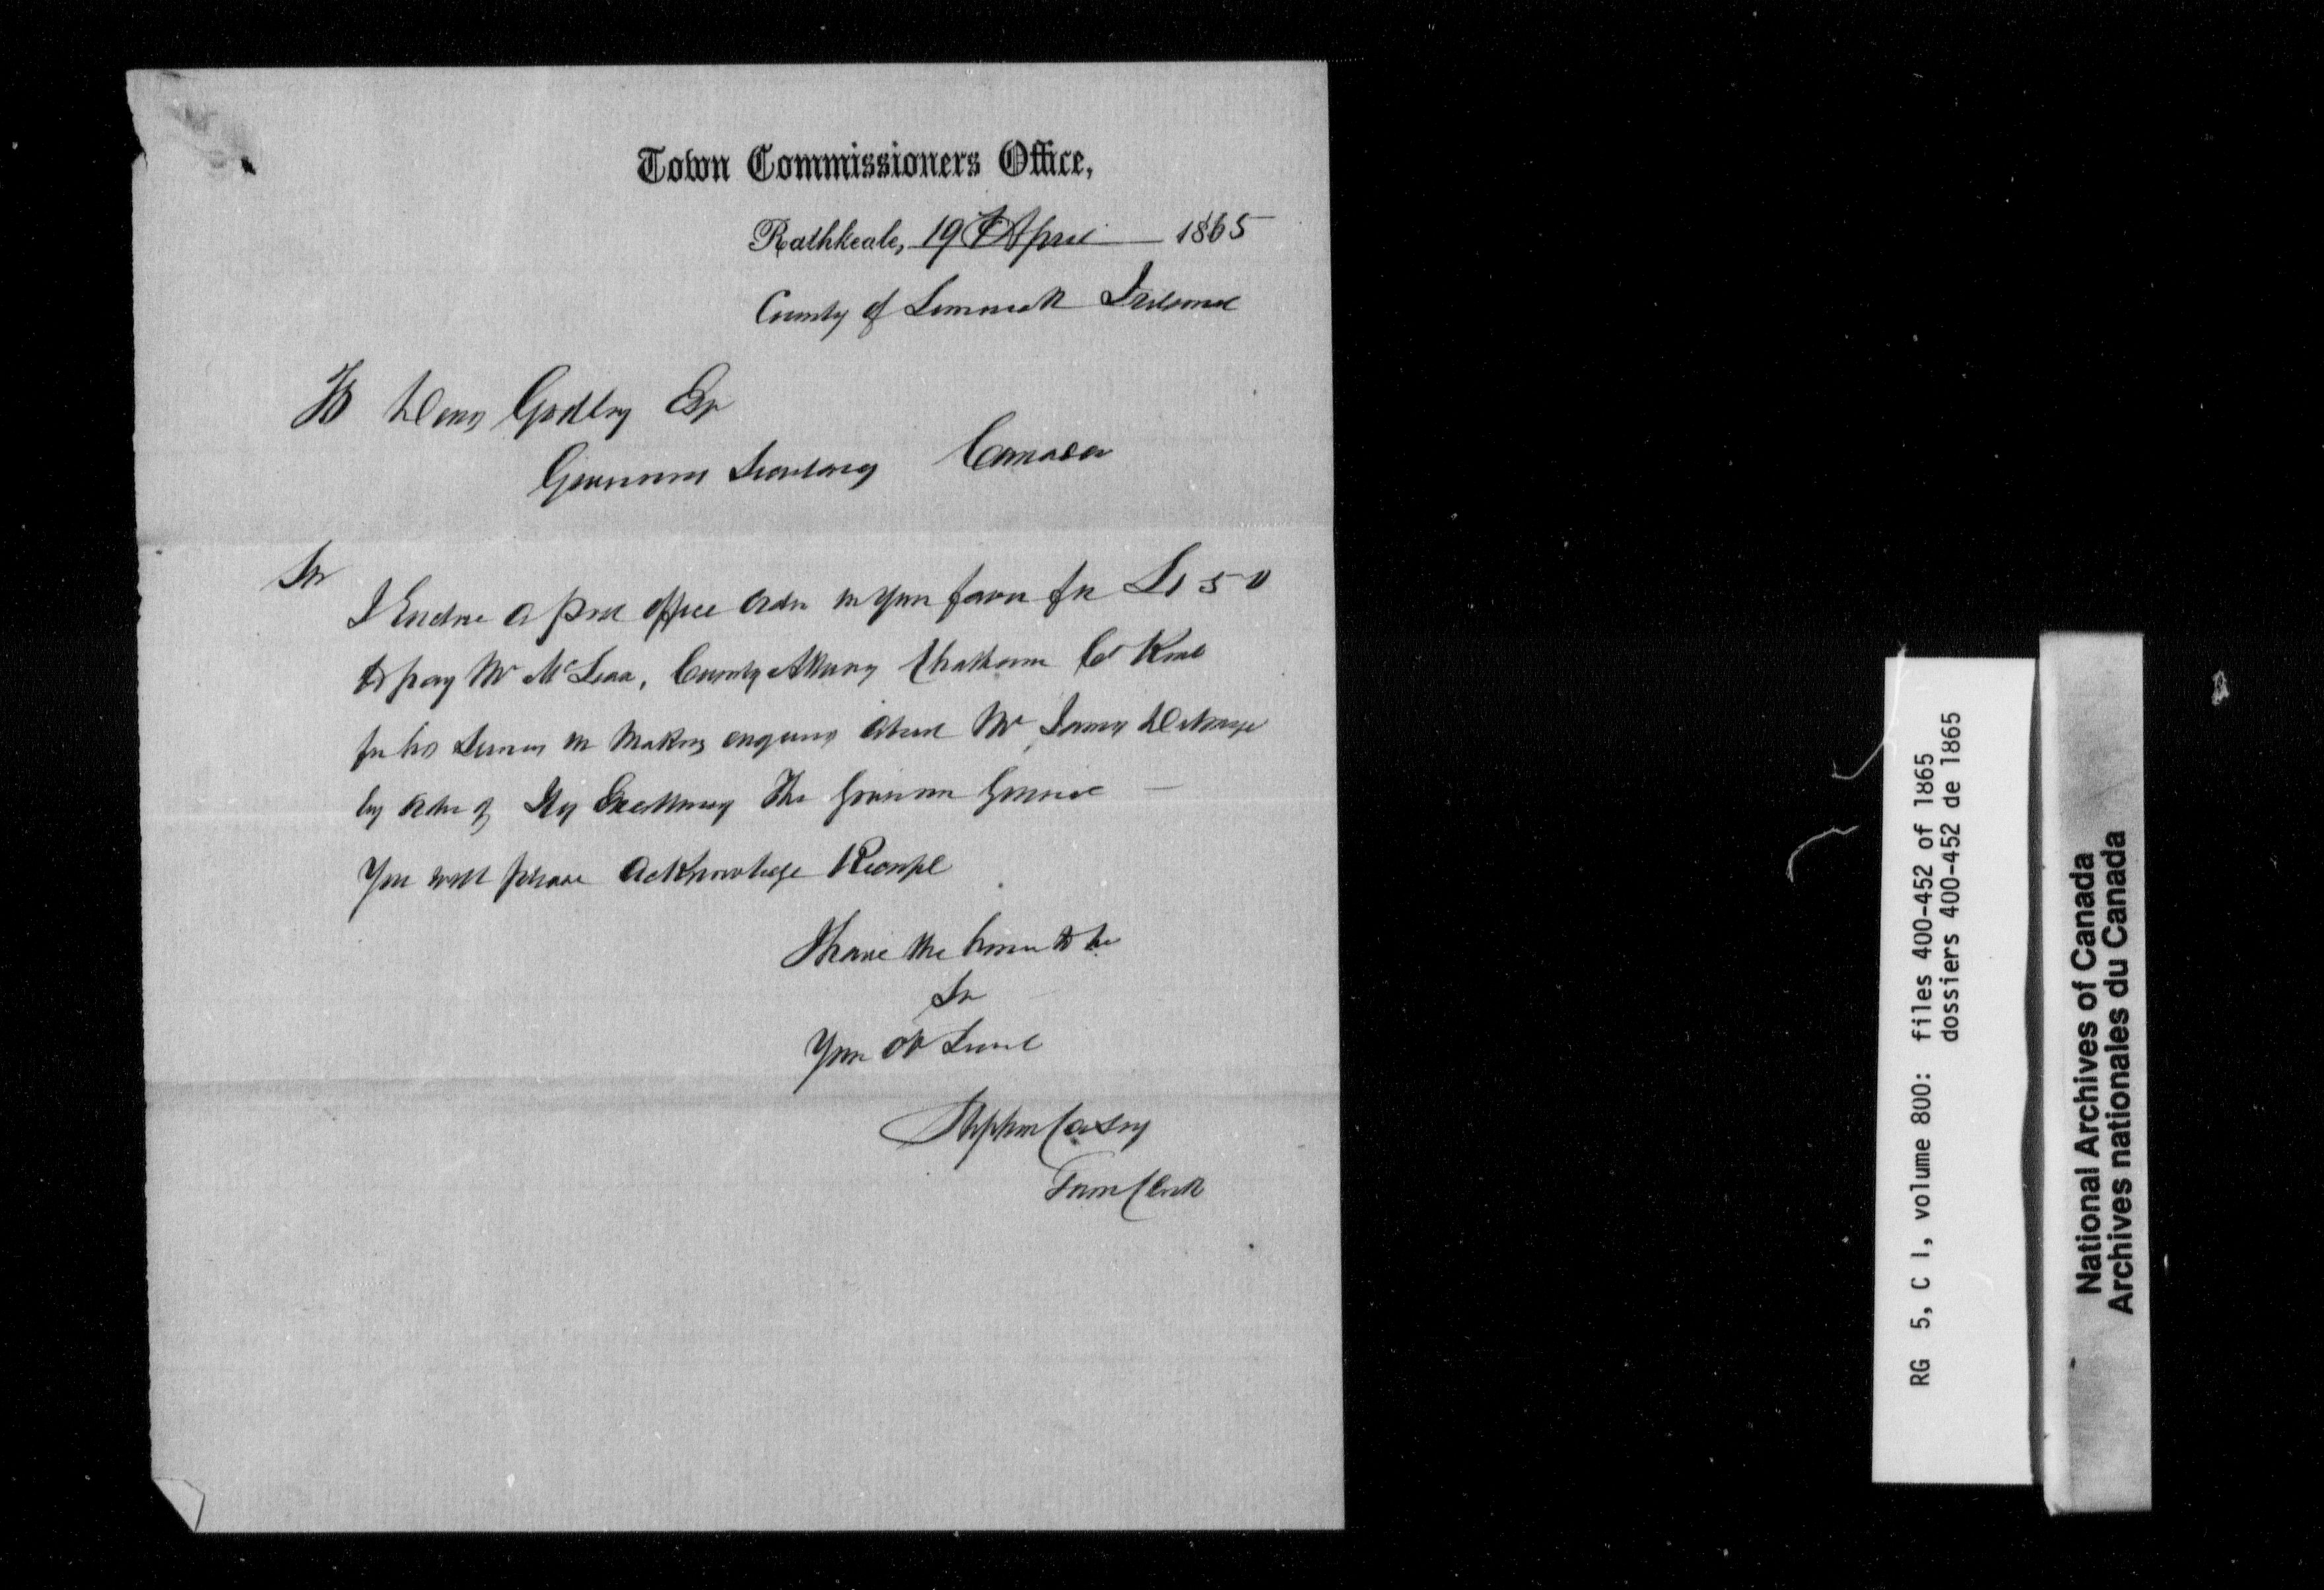 Town Commissioners Office,
Rathkeale, 19th April 1865
County of Limerick Ireland
To Deny Godley Esqr
Governors Secretary Canada
Sir
I Enclose a Post office order in your favor for £1 5 0
to pay Mr McLean, County Attorney Chatham Co Kent
for his Services in making enquiry about Mr James
by order of His Excellency The Governor General —
You will please acknowledge Receipt
I have the honor to be
Sir
Your Ob Servt
Stephen
Town Clerk
RG 5, C 1, volume 800: files 400-452 of 1865
dossiers 400-452 de 1865
National Archives of Canada
Archives nationales du Canada